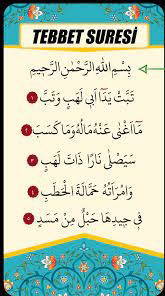 TEBBET SURESİ
بِسْمِ اللهِ الرَّحْمٰنِ الرَّحِيمِ
تَبَّتْ يَدَٓا اَبٖي لَهَبٍ وَتَبَّ ١
مَٓا اَغْنٰى عَنْهُ مَالُهُ وَمَا كَسَبَ ٢
سَيَصْلٰى نَارًا ذَاتَ لَهَبٍ ٣
وَامْرَاَتُهُ حَمَّالَةَ الْحَطَبِ ٤
فٖي جٖيدِهَا حَبْلٌ مِنْ مَسَدٍ ٥